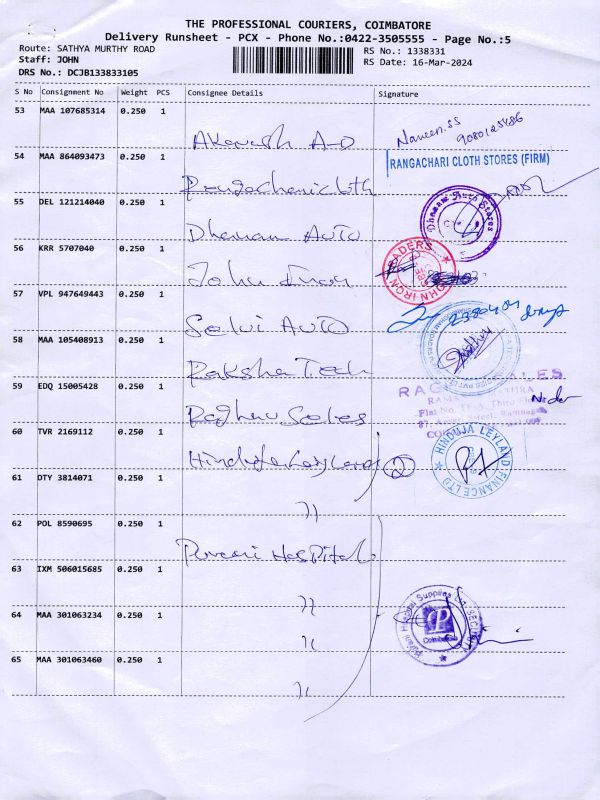 THE PROFESSIONAL COURIERS, COIMBATORE
Delivery Runsheet - PCX - Phone No.:0422-3505555 - Page No.:5
Route: SATHYA MURTHY ROAD RS No.: 1338331
Staff: JOHN RS Date: 16-Mar-2024
DRS No.: DCJB133833105
S No Consignment No Weight PCS Consignee Details Signature
53 MAA 107685314 0.250 1
Naveen.SS
9080125486
54 MAA 864093473 0.250 1 RANGACHARI CLOTH STORES (FIRM)
Rangacharicloth
55 DEL 121214040 0.250 1 Dhanam Auto Stores
Dhanam Auto
56 KRR 5707040 0.250 1 JOHN IRON TRADERS
57 VPL 947649443 0.250 1
Selvi Auto
58 MAA 105408913 0.250 1
Raksha Tech
59 EDQ 15005428 0.250 1
Raghav Sales
60 TVR 2169112 0.250 1 HINDUJA LEYLAND FINANCE LTD
2
61 DTY 3814071 0.250 1
"
62 POL 8590695 0.250 1
Purani Hospital
63 IXM 506015685 0.250 1
"
64 MAA 301063234 0.250 1 Hospital Supplies Ltd SECURITY
Coimbatore
"
65 MAA 301063460 0.250 1
"